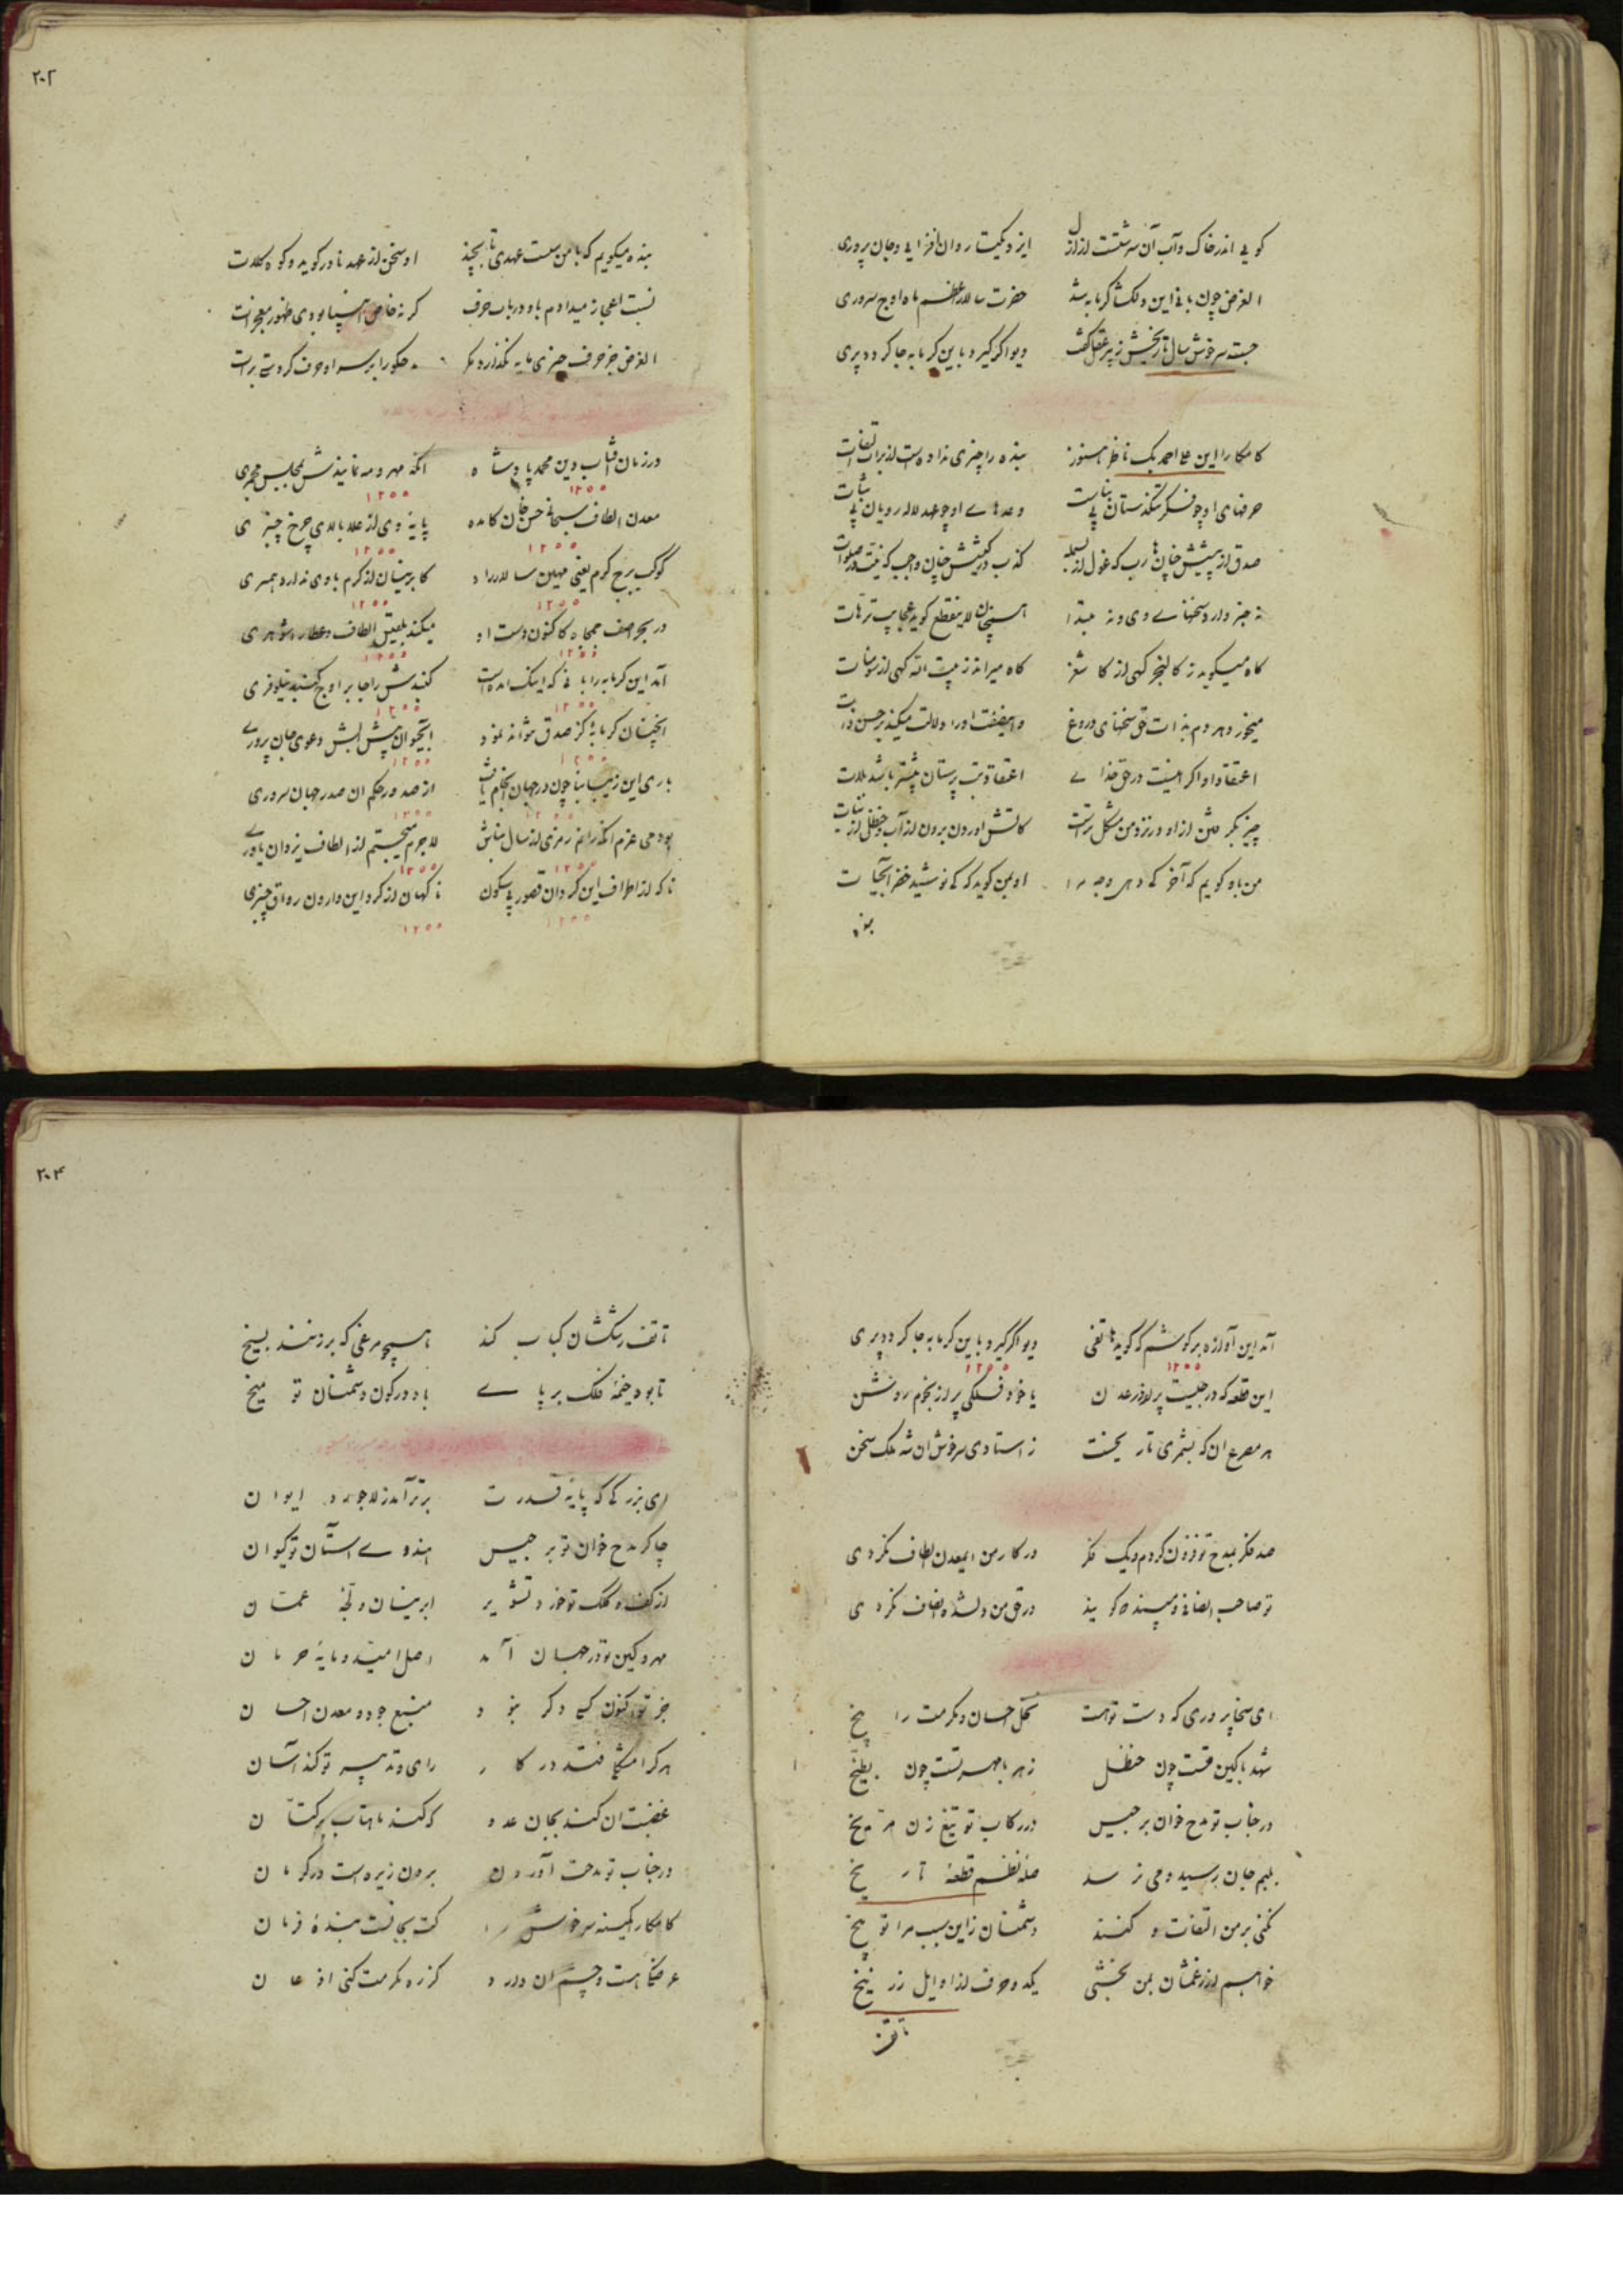 گویی اندر خاک و آب آن سرشتست از ازل ایزد یکتا روان افزایی و جان پروری
الغرض چون بانی این دلکش گرمابه شد حضرت سالار اعظم ماه اوج سروری
جست سرخوش سال تاریخش ز پیر عقل گفت دیو اگر گیرد باین گرمابه جا گردد پری
کامکارا این علی احمد بک ناظر هنوز بنده را چیزی نداده است از برات التفات
حرفهای او چو فسکر تنگدستان بی ثبات وعدهای او چو عهد لاله رویان بی ثبات
صدق از پیشش چنان هارب که غول از بسمله کذب در کیشش چنان واجب که نیت در صلوات
نه خبر دارد سخنهای وی و نه مبتدا همچنان لاینقطع گوید عجایب ترهات
گاه میگوید ز کالنجر گهی از کاشغر گاه میراند ز بیت الله گهی از سومنات
میخورد هر دم بذات حق سخنهای دروغ واینصفت او را دلالت میکند بر حسن ذات
اعتقاد او اگر اینست در حق خدای اعتقاد بت پرستان بیشتر باشد بلات
چیز دیگر متن از او در نزد من مشکلتر است کاتش آوردن برون از آب و حنظل از نبات
من باو گویم که آخر که دهی وجه مرا او بمن گوید که که نوشید خضر آبحیات
بنده
۲۰۲
بنده میگویم که با من سست عهدی تا بچند او سخن از عهد نادر گوید و کوه کلات
نسبت اعجاز میدادم باو در باب حرف گر نه خاص انبیا بودی ظهور معجزات
الغرض جز حرف چیزی مایه نگذارد مگر حکو را بر سر او حرف گردستی برات
در زمان آفتاب دین محمد پادشاه آنکه مهر و مه نمایندش بمجلس مجمری
۱۲۵۵ ۱۲۵۵
معدن الطاف سبحانی حسن خان کامده پایهٔ وی از علا بالای چرخ چنبری
۱۲۵۵ ۱۲۵۵
کوکب برج کرم یعنی مهین سالار راد کابر نیسان از کرم با وی ندارد همسری
۱۲۵۵ ۱۲۵۵
در بحر آصف جمجاه کاکنون دست او میکند بلعتق الطاف و عطا را شوهری
۱۲۵۵ ۱۲۵۵
آمد این گرمابه را بانی که اینک آمده است گنبدش را جا بر اوج گنبد نیلوفری
۱۲۵۵ ۱۲۵۵
اینچنان گرمابهٔ کز صدق مؤانه نمود آبحیوان پیش آبش دعوی جان پروری
۱۲۵۵ ۱۲۵۵
باری این زیبا بنا چون در جهان انجام یافت از صدور حکم آن صدر جهان سروری
۱۲۵۵ ۱۲۵۵
بودمی عزم آنکه رانم رمزی از سال بناش لاجرم میجستم از الطاف یزدان یاوری
۱۲۵۵ ۱۲۵۵
ناگه از اطراف این گردان قصور بی سکون ناگهان از گرد این وارون رواق چنبری
۱۲۵۵ ۱۲۵۵
آمد این آوازه بر گوشم که گوید هاتفی دیو اگر گیرد باین گرمابه جا گردد پری
۱۲۵۵ ۱۲۵۵
این قطعه که در جیبست پر از در عدن یا خود فلکی پر از نجوم روشن
هر مصرع آن که بشمری تاریخست ز استادی سرخوش آن شه ملک سخن
صد فکر بمدح تو فزون کردم و یک فکر در کار من ایمعدن الطاف نکردی
تو صاحب انصافی و مپسند که گویند در حق من دلشده انصاف نکردی
ای سخا پروری که دست تو هست نخل احسان و مکرمت را بیخ
شهد با کین قهرت چون حنظل زهر با مهر تست چون بطیخ
در جناب تو مدح خوان برجیس در رکاب تو تیغ زن مریخ
بلبم جان رسید و می نرسد صلهٔ نظم قطعهٔ تاریخ
نکنی بر من التفات و کنند دشمنان زاین سبب مرا توبیخ
خواهم از زعمشان بمن بخشی یکدو حرف از اوایل زرنیخ
تا تف
۲۰۳
تا تف رشکشان کباب کند همچو مرغی که برزنند بسیخ
تا بود خیمهٔ فلک بر پای باد در کون دشمنان تو میخ
ای بزرگی که پایهٔ قدرت برتر آمد ز لاجورد ایوان
چاکر مدح خوان تو برجیس هندوی آستان تو کیوان
از کف و کلک تو خورد تشویر ابر نیسان و لجهٔ عمان
مهر و کین تو در جهان آمد اصل امید و مایهٔ حرمان
جز تو اکنون کی دگر نبود منبع جود و معدن احسان
هر کرا مشکلی فتد در کار رای و تدبیر تو کند آسان
غضبت آن کند بجان عدو که کند ماهتاب بر کتان
در جناب تو مدحت آوردن بردن زیره است در کرمان
کامکارا کمینه سرخوش را کت بجانست بندهٔ فرمان
عرضکی هست و چشم آن دارد کز ره مکرمت کنی اذعان